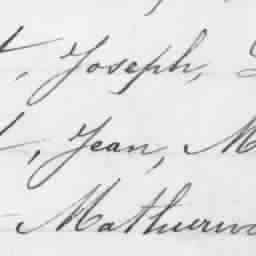 t, Joseph,
t, Jean, M
Mathurin